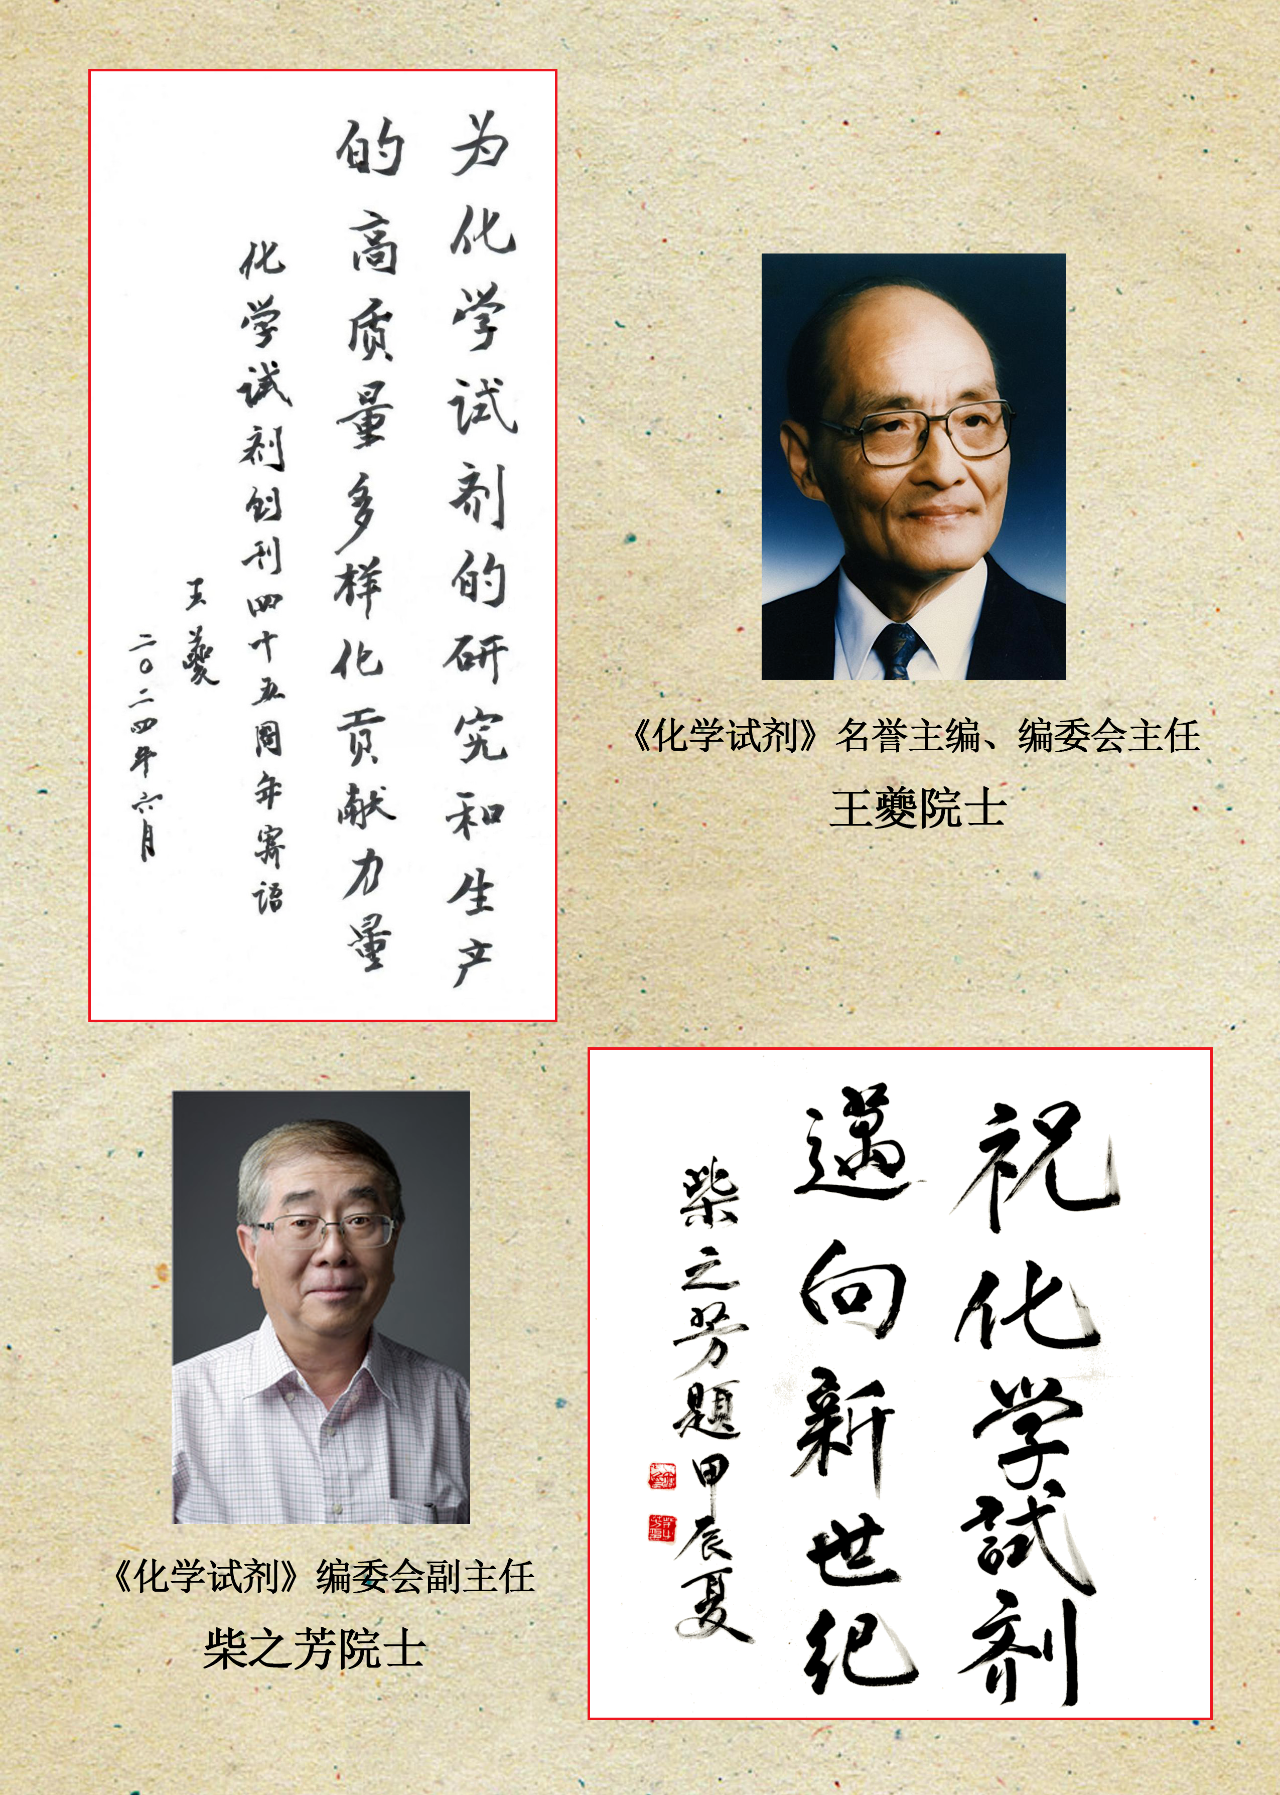 为化学试剂的研究和生产
的高质量多样化贡献力量
化学试剂创刊四十五周年寄语
王夔
二〇二四年六月
《化学试剂》名誉主编、编委会主任
王夔院士
《化学试剂》编委会副主任
柴之芳院士
祝化学試剂
邁向新世纪
柴之芳題甲辰夏